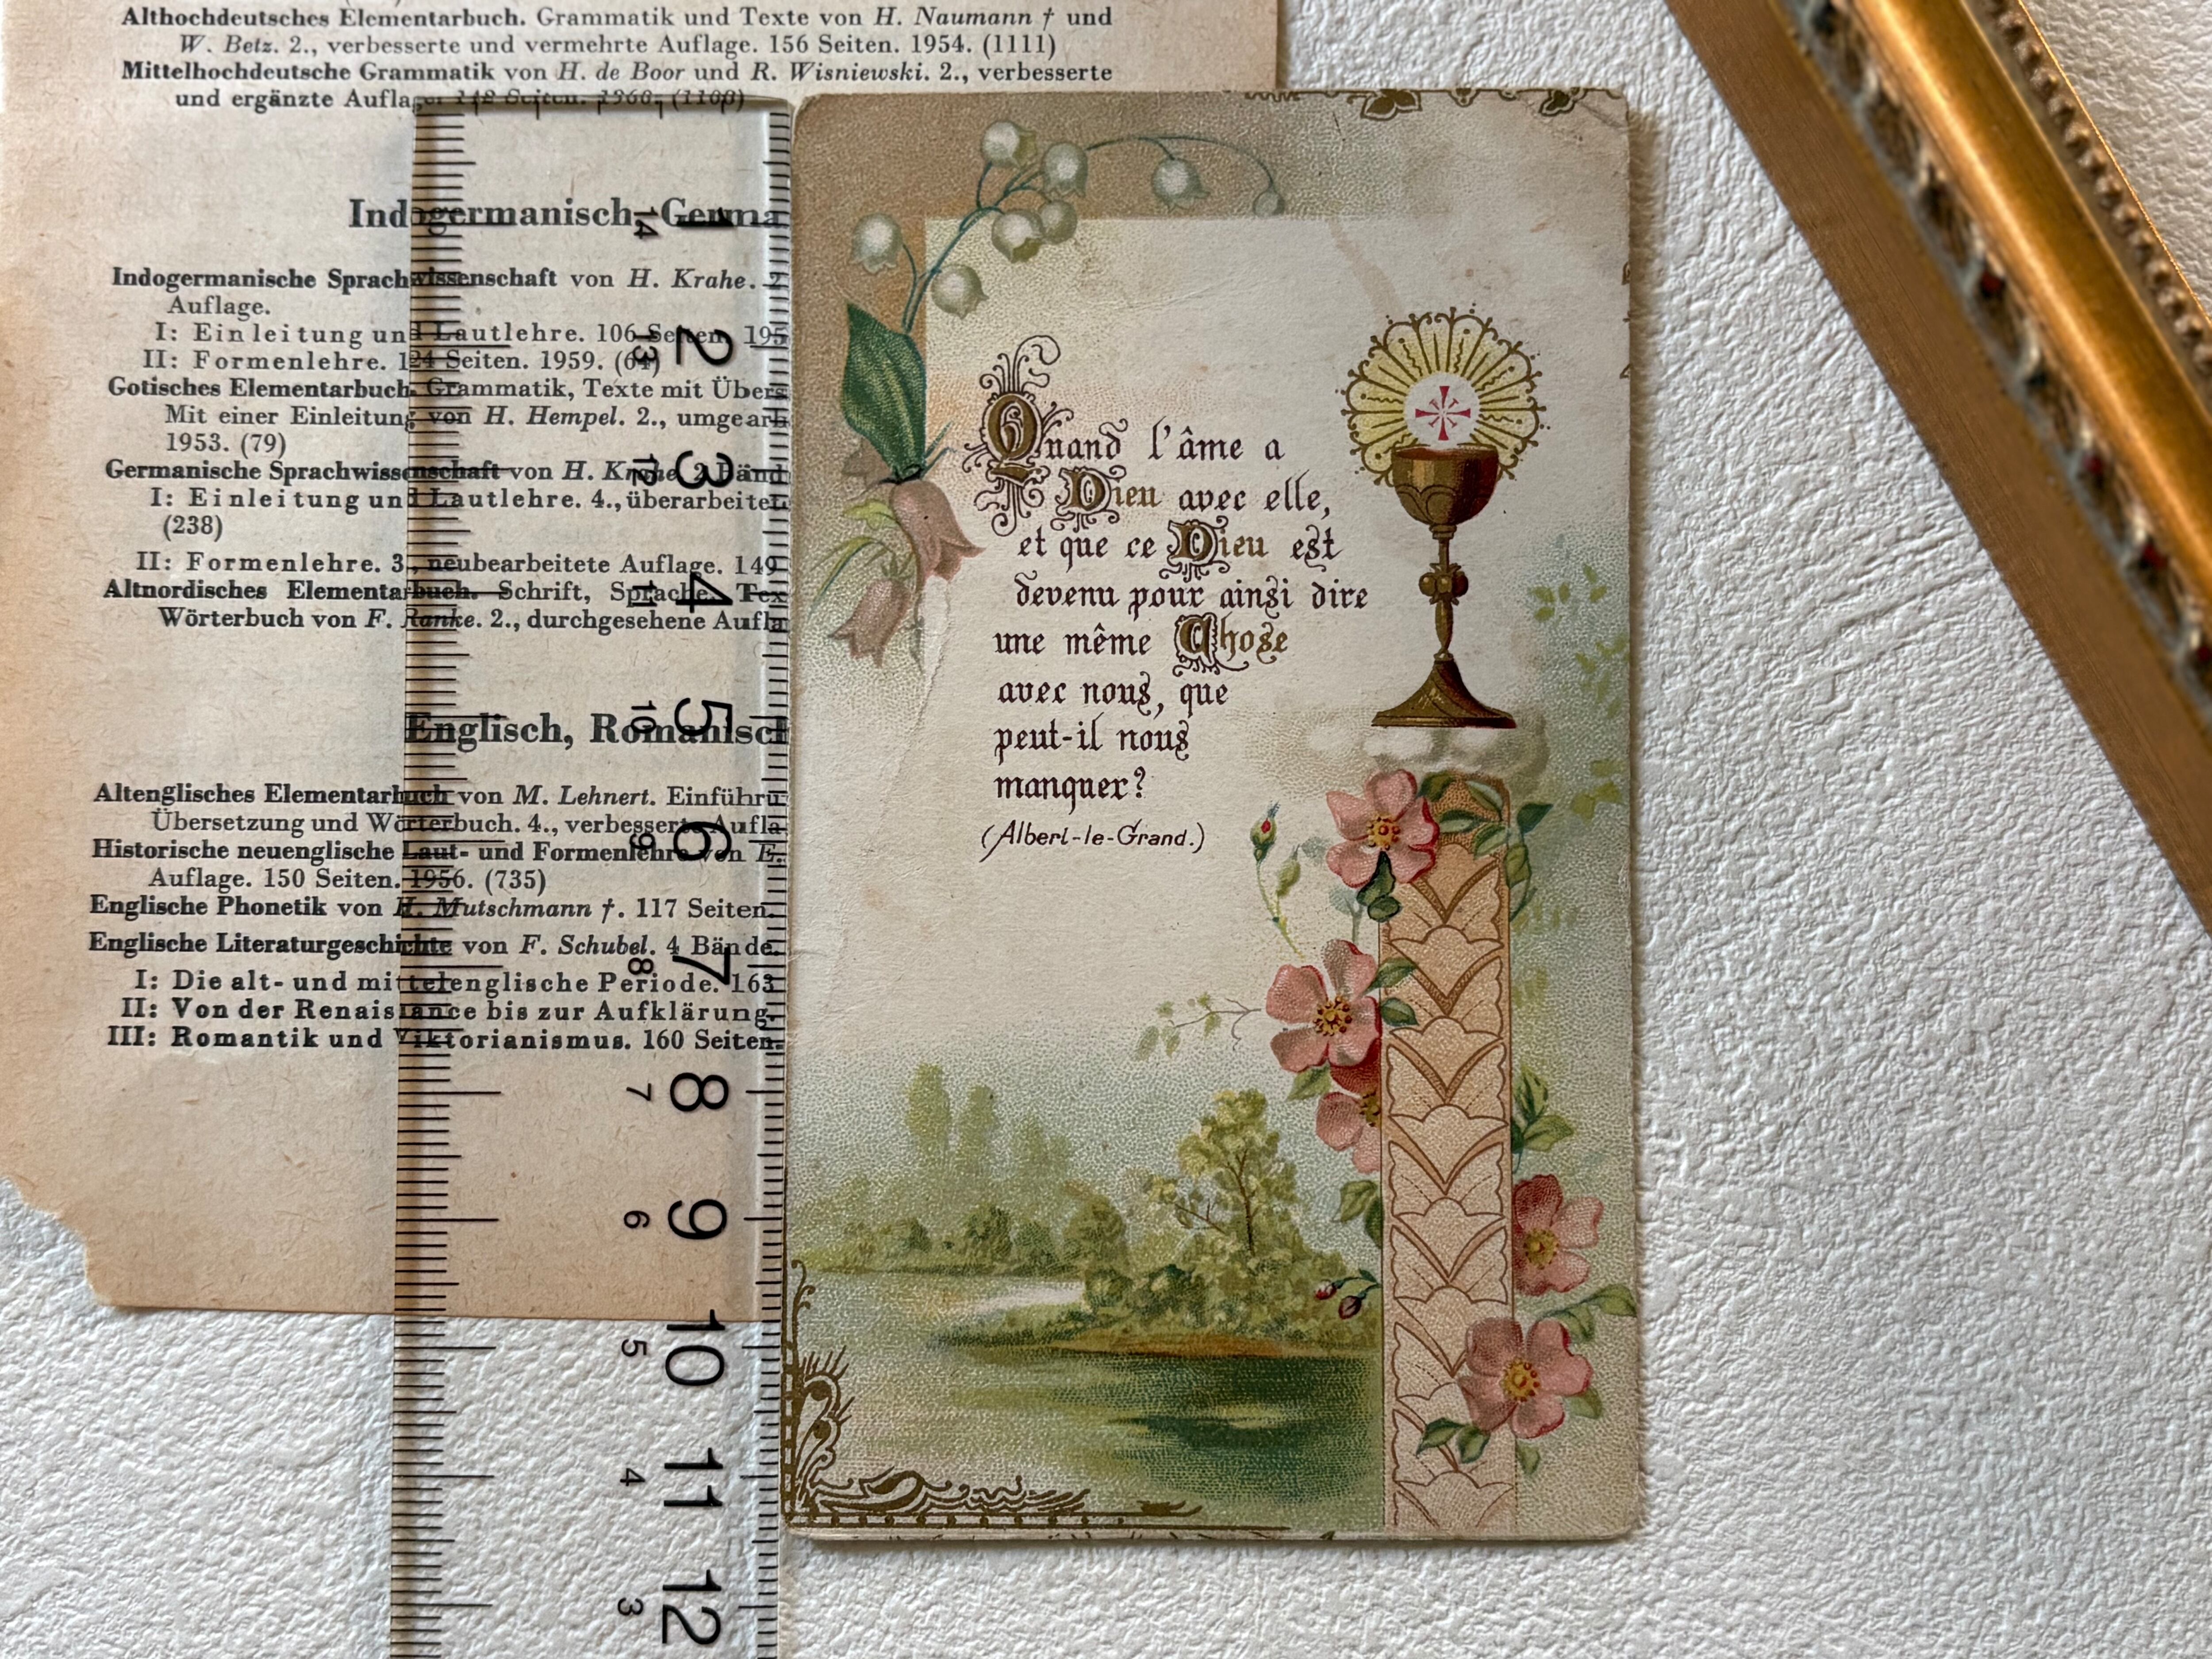 Althochdeutsches Elementarbuch. Grammatik und Texte von H. Naumann † und
W. Betz. 2., verbesserte und vermehrte Auflage. 156 Seiten. 1954. (1111)
Mittelhochdeutsche Grammatik von H. de Boor und R. Wisniewski. 2., verbesserte
und ergänzte Auflage. 142 Seiten. 1960. (1108)
Indogermanisch, Germa
Indogermanische Sprachwissenschaft von H. Krahe. 2
Auflage.
I: Einleitung und Lautlehre. 106 Seiten. 195
II: Formenlehre. 124 Seiten. 1959. (64)
Gotisches Elementarbuch. Grammatik, Texte mit Übers
Mit einer Einleitung von H. Hempel. 2., umgearb
1953. (79)
Germanische Sprachwissenschaft von H. Krahe. 2 Bänd
I: Einleitung und Lautlehre. 4., überarbeitet
(238)
II: Formenlehre. 3., neubearbeitete Auflage. 149
Altnordisches Elementarbuch. Schrift, Sprache, Tex
Wörterbuch von F. Ranke. 2., durchgesehene Aufla
Englisch, Romanisch
Altenglisches Elementarbuch von M. Lehnert. Einführu
Übersetzung und Wörterbuch. 4., verbesserte Aufla
Historische neuenglische Laut- und Formenlehre von E.
Auflage. 150 Seiten. 1956. (735)
Englische Phonetik von H. Mutschmann †. 117 Seiten.
Englische Literaturgeschichte von F. Schubel. 4 Bände.
I: Die alt- und mittelenglische Periode. 163
II: Von der Renaissance bis zur Aufklärung.
III: Romantik und Viktorianismus. 160 Seiten.
1 2 3 4 5 6 7 8 9 10 11 12
14 13 12 11 10 9 8 7 6 5 4 3
Quand l'âme a
Dieu avec elle,
et que ce Dieu est
devenu pour ainsi dire
une même Chose
avec nous, que
peut-il nous
manquer?
(Albert-le-Grand.)